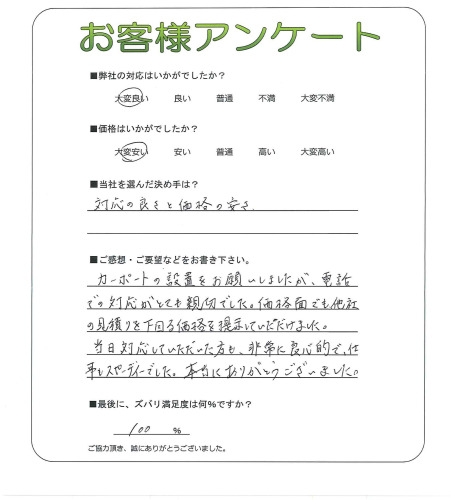 お客様アンケート
■弊社の対応はいかがでしたか？
大変良い 良い 普通 不満 大変不満
■価格はいかがでしたか？
大変安い 安い 普通 高い 大変高い
■当社を選んだ決め手は？
対応の良さと価格の安さ
■ご感想・ご要望などをお書き下さい。
カーポートの設置をお願いしましたが、電話
での対応がとても親切でした。価格面でも他社
の見積りを下回る価格を提示していただけました。
当日対応していただいた方も、非常に良心的で、仕
事もスピーディーでした。本当にありがとうございました。
■最後に、ズバリ満足度は何%ですか？
100 %
ご協力頂き、誠にありがとうございました。